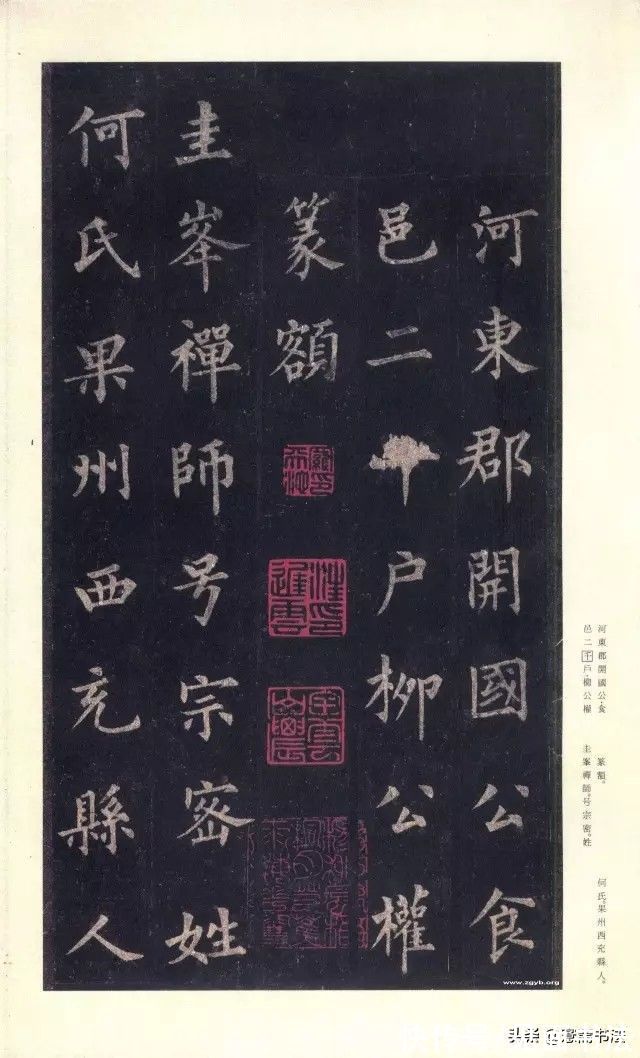 河東郡開國公食
邑二千户柳公權
篆額
圭峯禪師号宗密姓
何氏果州西充縣人
河東郡開國公食
邑二千户柳公權
篆額。
圭峯禪師。号宗密。姓
何氏。果州西充縣人。
www.zgyb.org